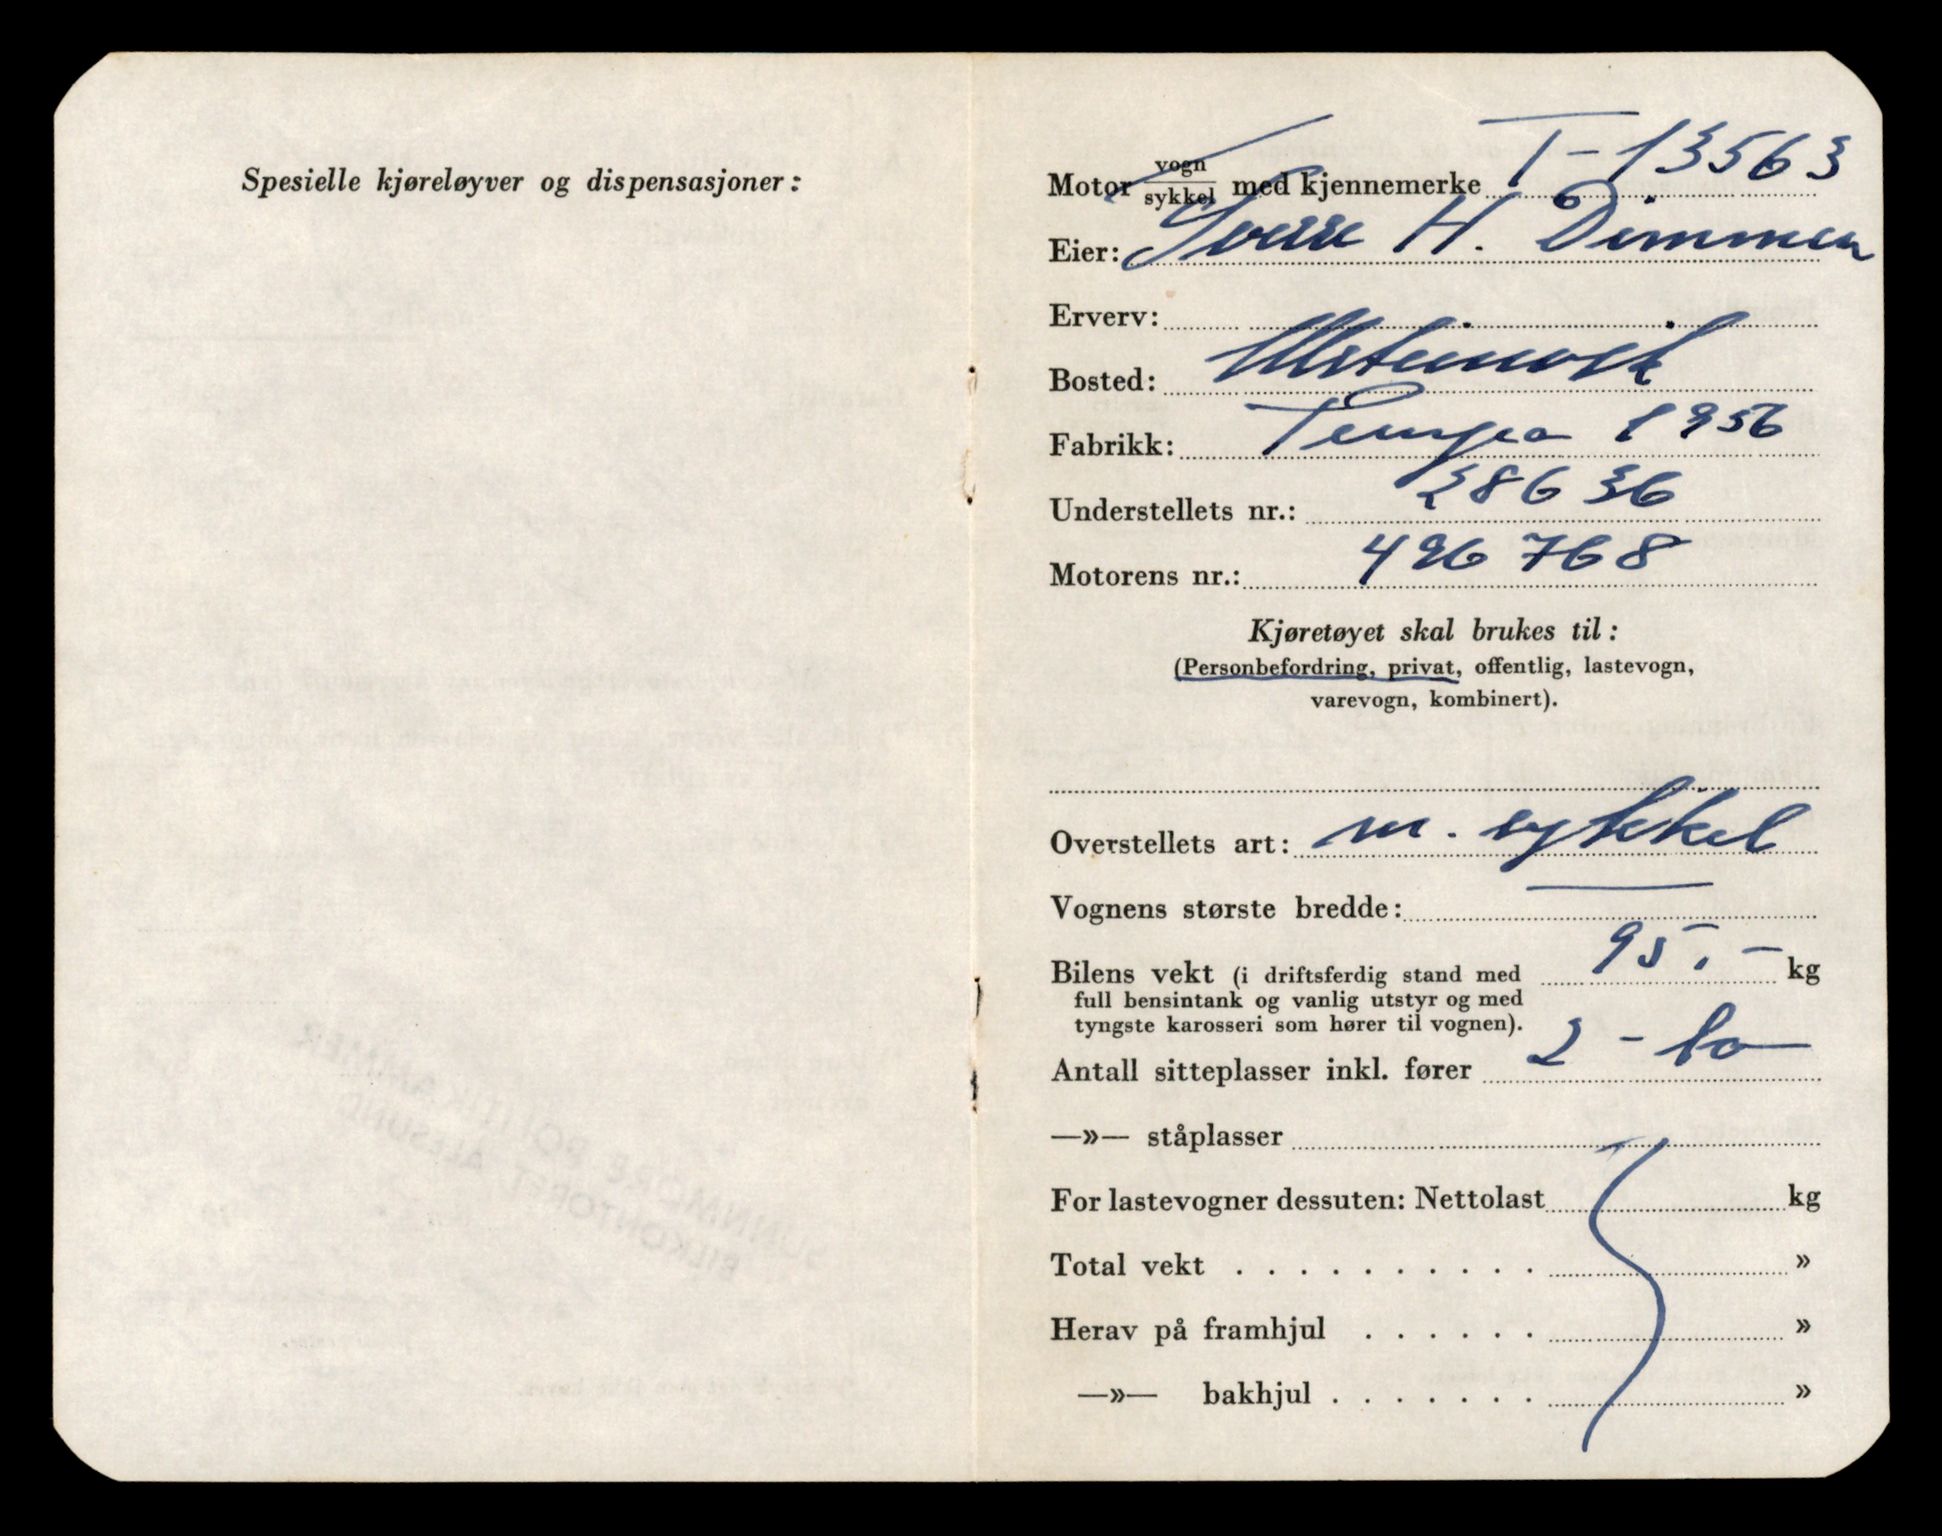 Spesielle kjøreløyver og dispensasjoner:
Motor vogn/sykkel med kjennemerke T-13563
Eier: Sverre H. Dimmen
Erverv:
Bosted:
Fabrikk: Tempo 1956
Understellets nr.: 28636
Motorens nr.: 496768
Kjøretøyet skal brukes til:
(Personbefordring, privat, offentlig, lastevogn,
varevogn, kombinert).
Overstellets art: m. sykkel
Vognens største bredde: —
Bilens vekt (i driftsferdig stand med 95.- kg
full bensintank og vanlig utstyr og med
tyngste karosseri som hører til vognen).
Antall sitteplasser inkl. fører 2 - to
—»— ståplasser
For lastevogner dessuten: Nettolast kg
Total vekt . . . . . . . . . . »
Herav på framhjul . . . . . . »
—»— bakhjul . . . . . . . »